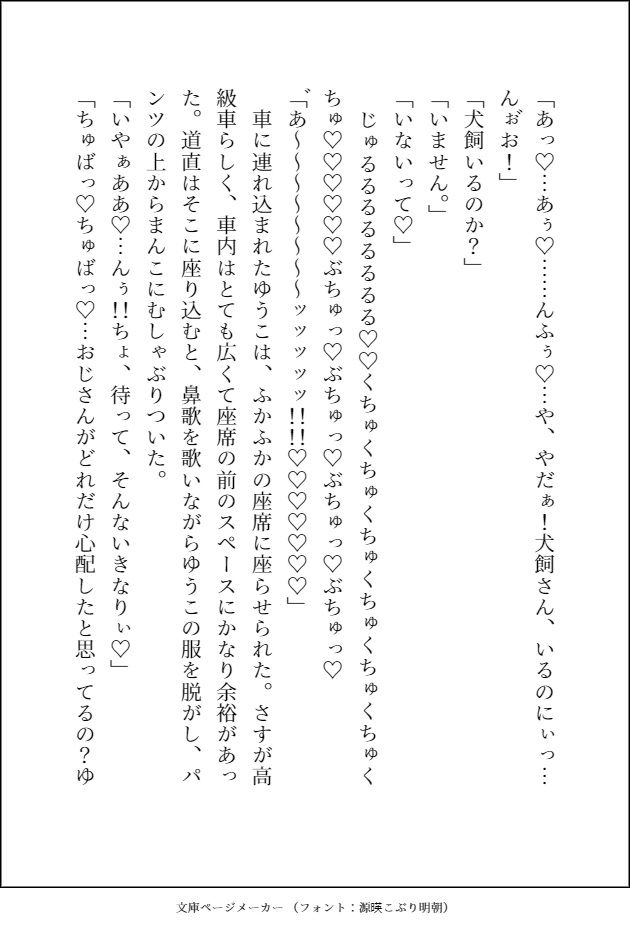 「あっ♡…あぅ♡……んふぅ♡…や、やだぁ！犬飼さん、いるのにぃっ…
んぉ゛お！」
「犬飼いるのか？」
「いません。」
「いないって♡」
　じゅるるるるるるるる♡♡くちゅくちゅくちゅくちゅくちゅくちゅく
ちゅ♡♡♡♡♡♡ぶちゅっ♡ぶちゅっ♡ぶちゅっ♡ぶちゅっ♡
「゛あ～～～～～～～～ッッッッッ!!!!♡♡♡♡♡♡♡」
　車に連れ込まれたゆうこは、ふかふかの座席に座らせられた。さすが高
級車らしく、車内はとても広くて座席の前のスペースにかなり余裕があっ
た。道直はそこに座り込むと、鼻歌を歌いながらゆうこの服を脱がし、パ
ンツの上からまんこにむしゃぶりついた。
「いやぁああ♡…んぅ!!ちょ、待って、そんないきなりぃ♡」
「ちゅばっ♡ちゅばっ♡…おじさんがどれだけ心配したと思ってるの？ゆ
文庫ページメーカー （フォント：源暎こぶり明朝）